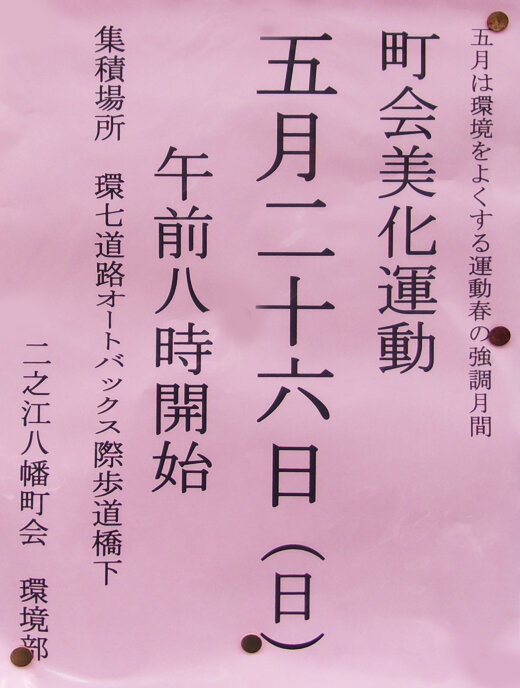 五月は環境をよくする運動春の強調月間
町会美化運動
五月二十六日（日）
午前八時開始
集積場所　環七道路オートバックス際歩道橋下
二之江八幡町会　環境部